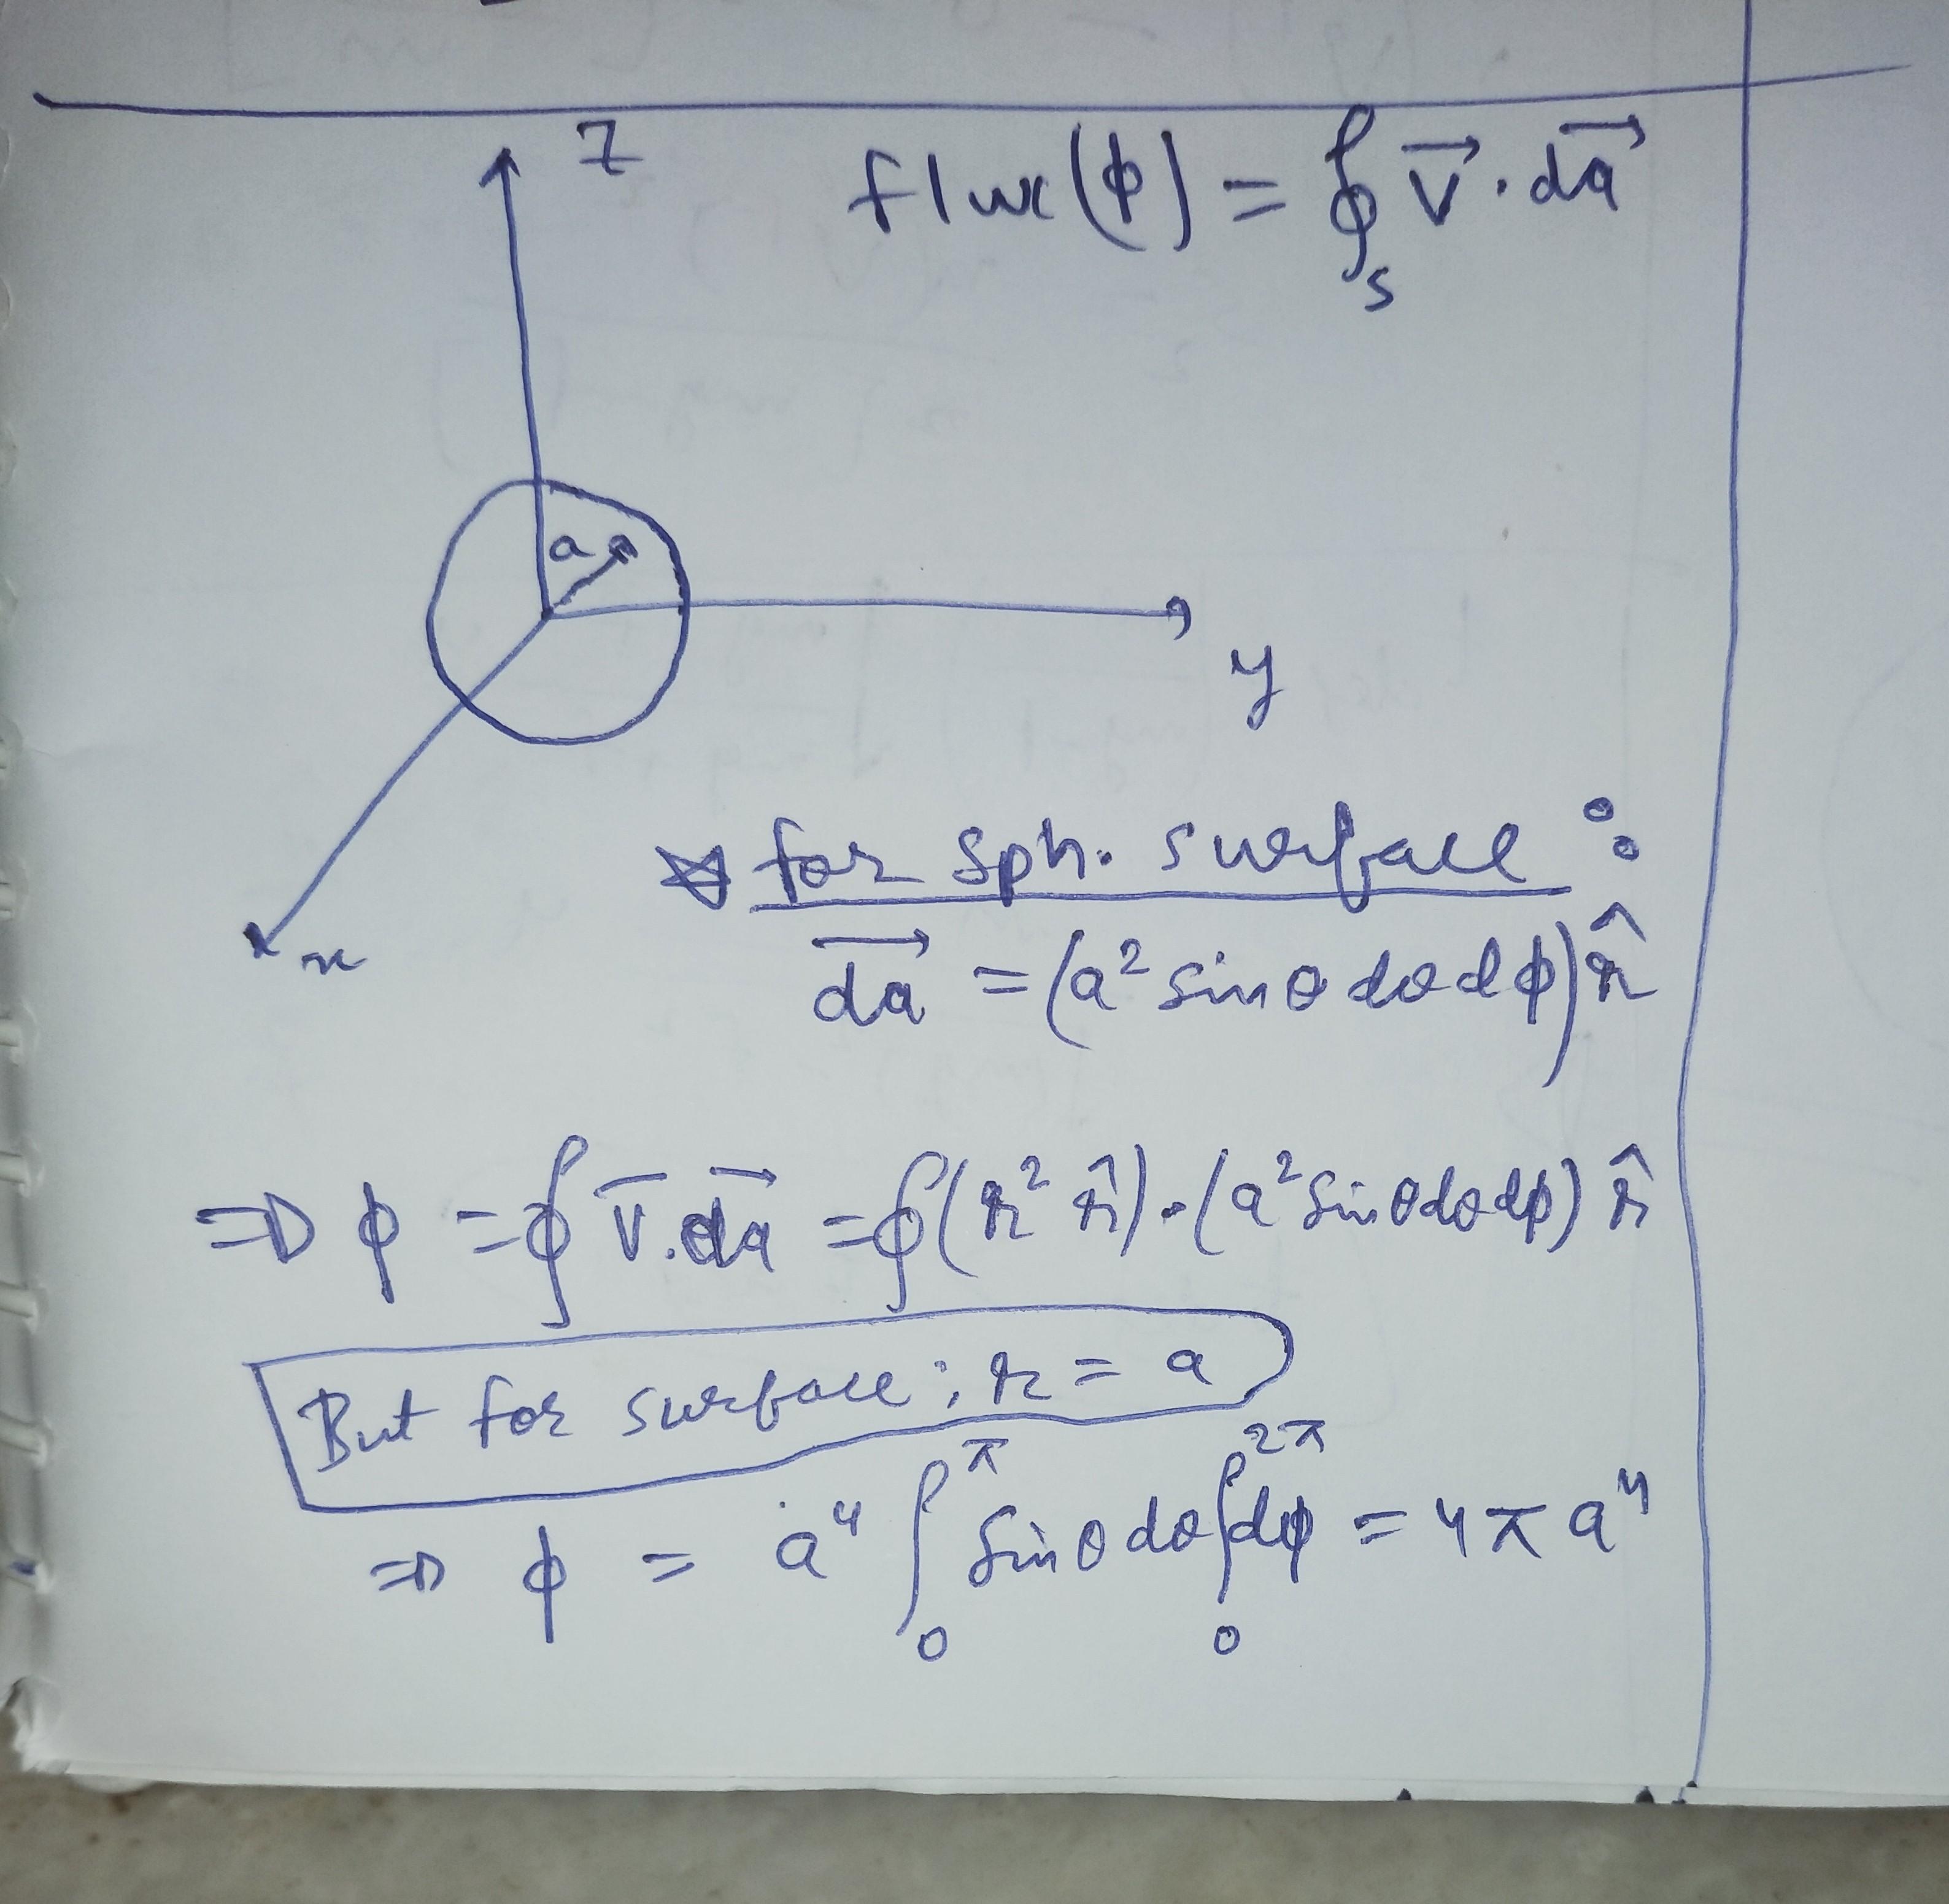 z
flux(ϕ) = ∮_S V⃗ . da⃗
a
y
x
for sph. surface :
da⃗ = (a² sinθ dθ dϕ) r̂
⇒ ϕ = ∮ V⃗ . da⃗ = ∮ (r² r̂) . (a² sinθ dθ dϕ) r̂
But for surface ; r = a
⇒ ϕ = a⁴ ∫₀^π sinθ dθ ∫₀^2π dϕ = 4πa⁴